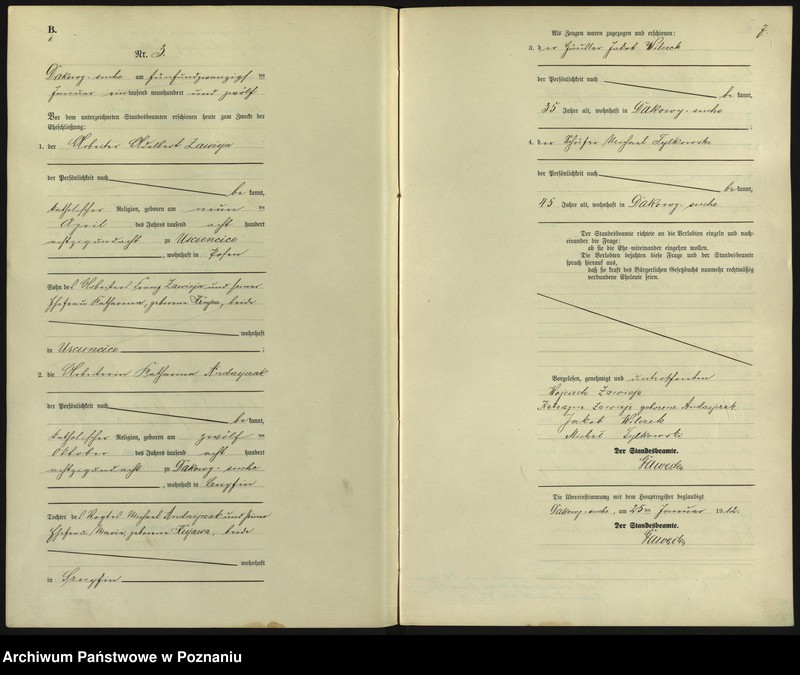 B.
6
Nr. 3.
Dakowy-suche am fünfundzwanzigsten
Januar eintausend neunhundert und zwölf
Vor dem unterzeichneten Standesbeamten erschienen heute zum Zwecke der
Eheschließung:
1. der Arbeiter Adalbert Zawieja
der Persönlichkeit nach
be kannt,
katholischer Religion, geboren am neunten
April des Jahres tausend acht hundert
achtzigundacht zu Usciencice
, wohnhaft in Posen
Sohn des Arbeiters Franz Zawieja und seiner
Ehefrau Katharina, geborene, beide
wohnhaft
in Usciencice ;
2. die Arbeiterin Katharina Andrzejczak
der Persönlichkeit nach
be kannt,
katholischer Religion, geboren am zwölf ten
Oktober des Jahres tausend acht hundert
achtzigundacht zu Dakowy-suche
, wohnhaft in
Tochter des Michael Andrzejczak und seiner
Ehefrau Marie, geborene Kujawa, beide
wohnhaft
in
7.
Als Zeugen waren zugezogen und erschienen:
3. der Häusler Jakob Wilczek
der Persönlichkeit nach
be kannt,
35 Jahre alt, wohnhaft in Dakowy-suche
;
4. der Schäfer Michael Tylkowski
der Persönlichkeit nach
be kannt,
45 Jahre alt, wohnhaft in Dakowy-suche
Der Standesbeamte richtete an die Verlobten einzeln und nach-
einander die Frage:
ob sie die Ehe miteinander eingehen wollen.
Die Verlobten bejahten diese Frage und der Standesbeamte
sprach hierauf aus,
daß sie kraft des Bürgerlichen Gesetzbuchs nunmehr rechtmäßig
verbundene Eheleute seien.
Vorgelesen, genehmigt und unterschrieben
Wojciech Zawieja
Katarzyna Zawieja geborene Andrzejczak
Jakob Wilczek
Michał Tylkowski
Der Standesbeamte.
Die Übereinstimmung mit dem Hauptregister beglaubigt
Dakowy-suche, am 25ten Januar 1912.
Der Standesbeamte.
Archiwum Państwowe w Poznaniu